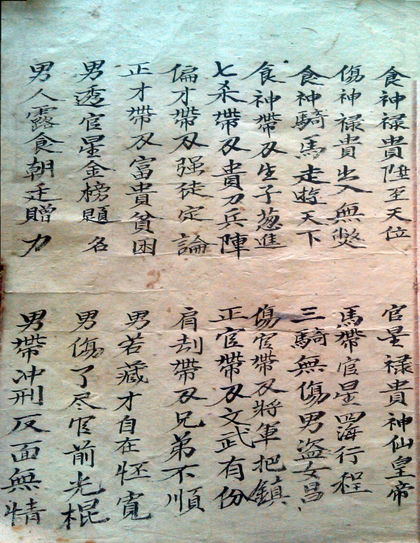 食神禄貴陞至天位 官星禄貴神仙皇帝
傷神禄貴出入無獘 馬帶官星四海行程
食神騎馬走遊天下 三騎無傷男盗女昌
食神帶刄生子進 傷官帶刄將軍把鎮
七杀帶刄貴刀兵陣 正官帶刄文武有份
偏才帶刄强徒定論 肩刦帶刄兄弟不順
正才帶刄富貴貧困 男若藏才自在寬
男透官星金榜題名 男傷了尽官前光棍
男人露食朝廷贈力 男帶冲刑反面無情